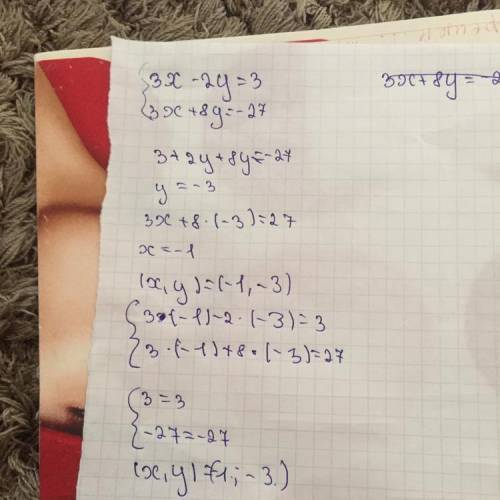 3x - 2y = 3
3x + 8y = -27
3x + 8y =
3 + 2y + 8y = -27
y = -3
3x + 8 · (-3) = 27
x = -1
(x, y) = (-1, -3)
3 · (-1) - 2 · (-3) = 3
3 · (-1) + 8 · (-3) = 27
3 = 3
-27 = -27
(x, y) = (-1; -3)